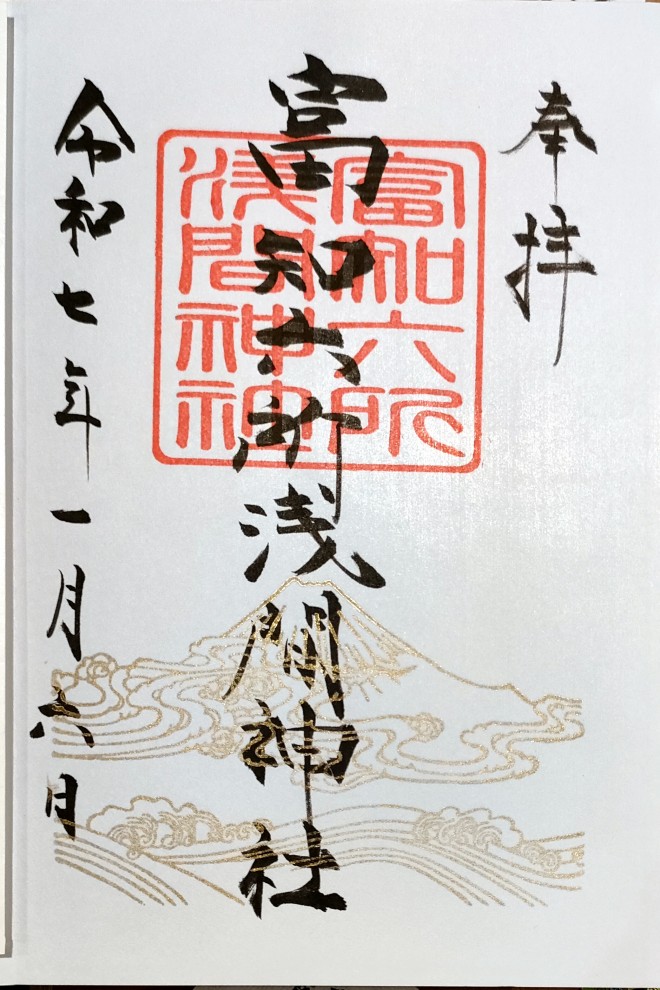 奉拝
富知六所浅間神社
富知六所
浅間神社
令和七年一月六日